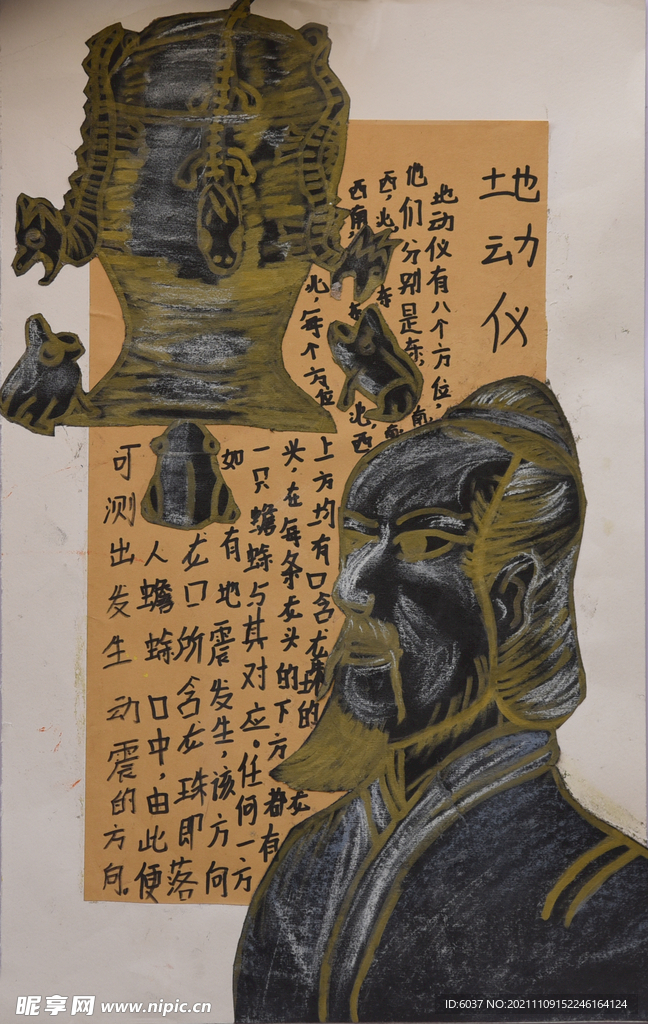 地动仪
地动仪有八个方位，
他们分别是东，南，
西，北，东南，
西南，东北，西
北，每个方位
上方均有口含龙珠的龙
头，在每条龙头的下方都有
一只蟾蜍与其对应。任何一方
如有地震发生，该方向
龙口所含龙珠即落
人蟾蜍口中，由此便
可测出发生动震的方向。
昵享网 www.nipic.cn
ID:6037 NO:20211109152246164124